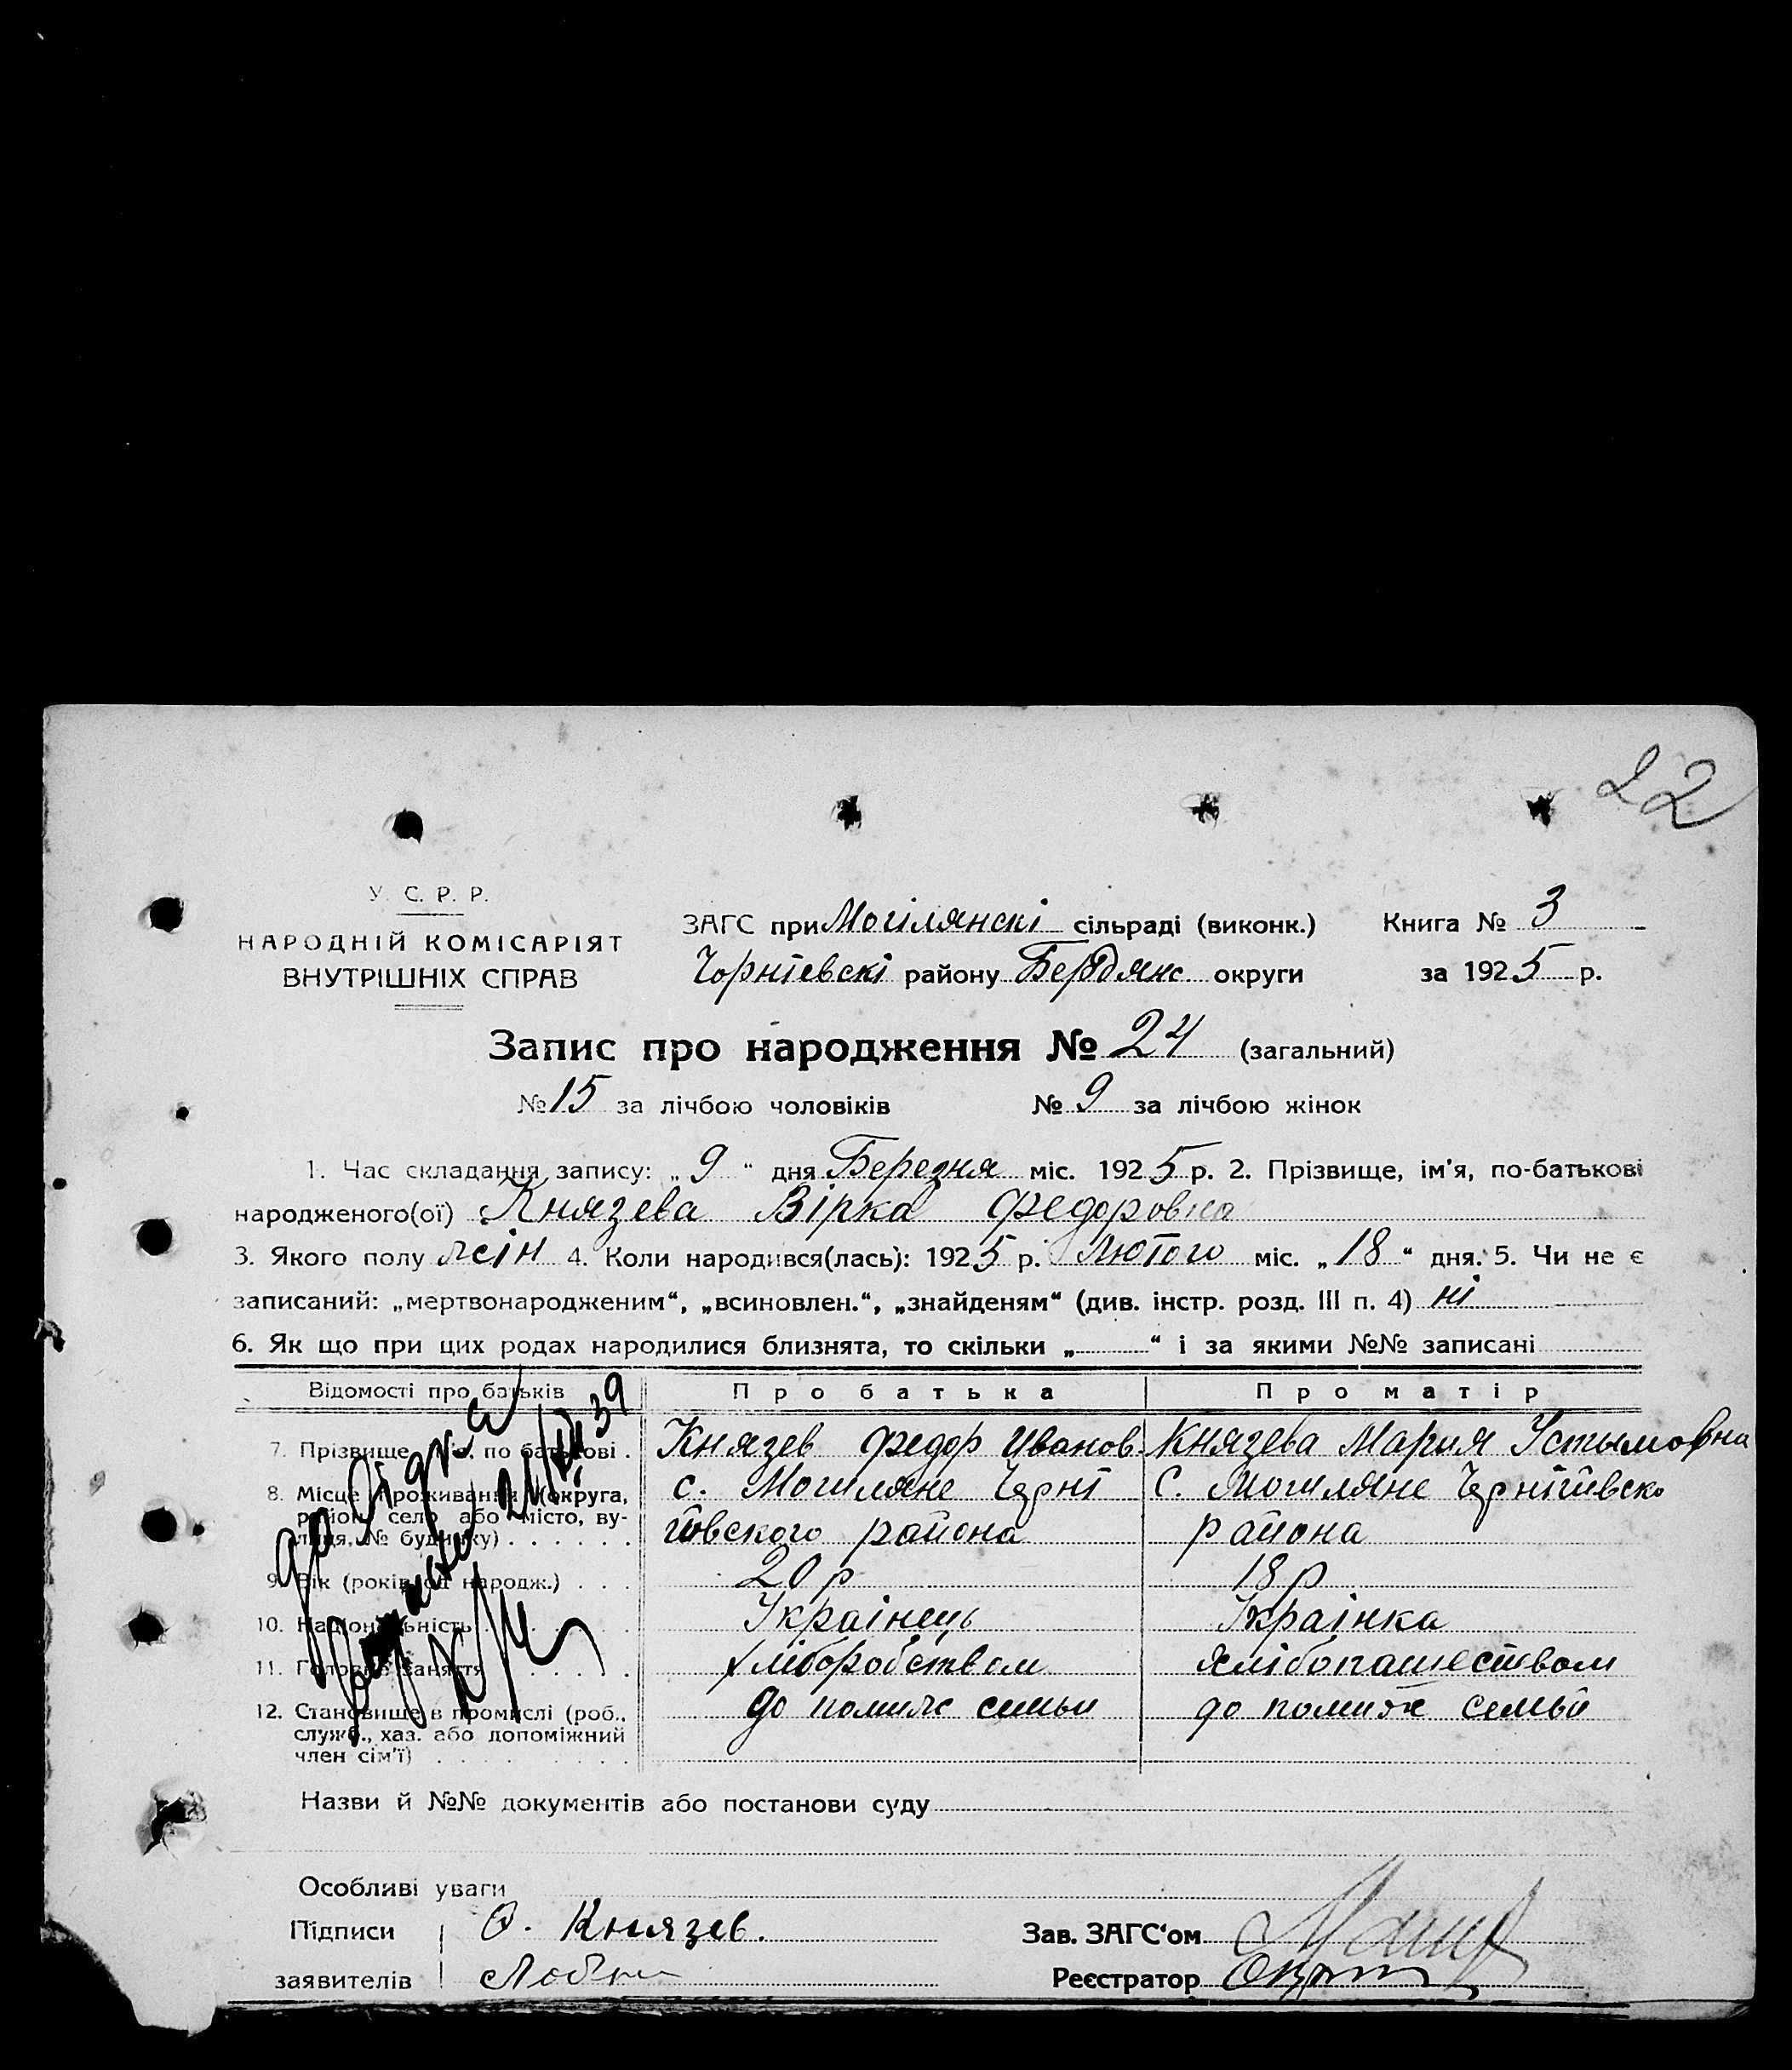 22
У. С. Р. Р.
НАРОДНІЙ КОМІСАРІЯТ
ВНУТРІШНІХ СПРАВ
ЗАГС при Могілянскі сільраді (виконк.) Книга № 3
Чорнігевскі району Бердянс округи за 1925 р.
Запис про народження № 24 (загальний)
№ 15 за лічбою чоловіків № 9 за лічбою жінок
1. Час складання запису: „9“ дня Березня міс. 1925 р. 2. Прізвище, ім'я, по-батькові
народженого(ої) Князева Вірка Федоровна
3. Якого полу жін 4. Коли народився(лась): 1925 р. Лютого міс. „18“ дня. 5. Чи не є
записаний: „мертвонародженим“, „всиновлен.“, „знайденям“ (див. інстр. розд. III п. 4) ні
6. Як що при цих родах народилися близнята, то скільки „ “ і за якими №№ записані
Відомості про батьків Про батька Про матір
7. Прізвище, ім'я, по батькові . Князев Федор Иванов. Князева Мария Устымовна
8. Місце проживання (округа, с. Могиляне Черні С. Могиляне Чернігівско
район, село або місто, ву- гівского района района
лиця, № будинку) . . . . . .
9. Вік (років од народж.) . . . 20 р 18 р
10. Національність . . . . . Українець Українка
11. Головне заняття . . . . . хліборобством хлібопашеством
12. Становище в промислі (роб., до помиж семьи до помиж семьи
служб., хаз. або допоміжний
член сім'ї) . . . . . . . .
39
Назви й №№ документів або постанови суду
Особливі уваги
Підписи Ф. Князев.
заявителів
Зав. ЗАГС'ом
Реєстратор